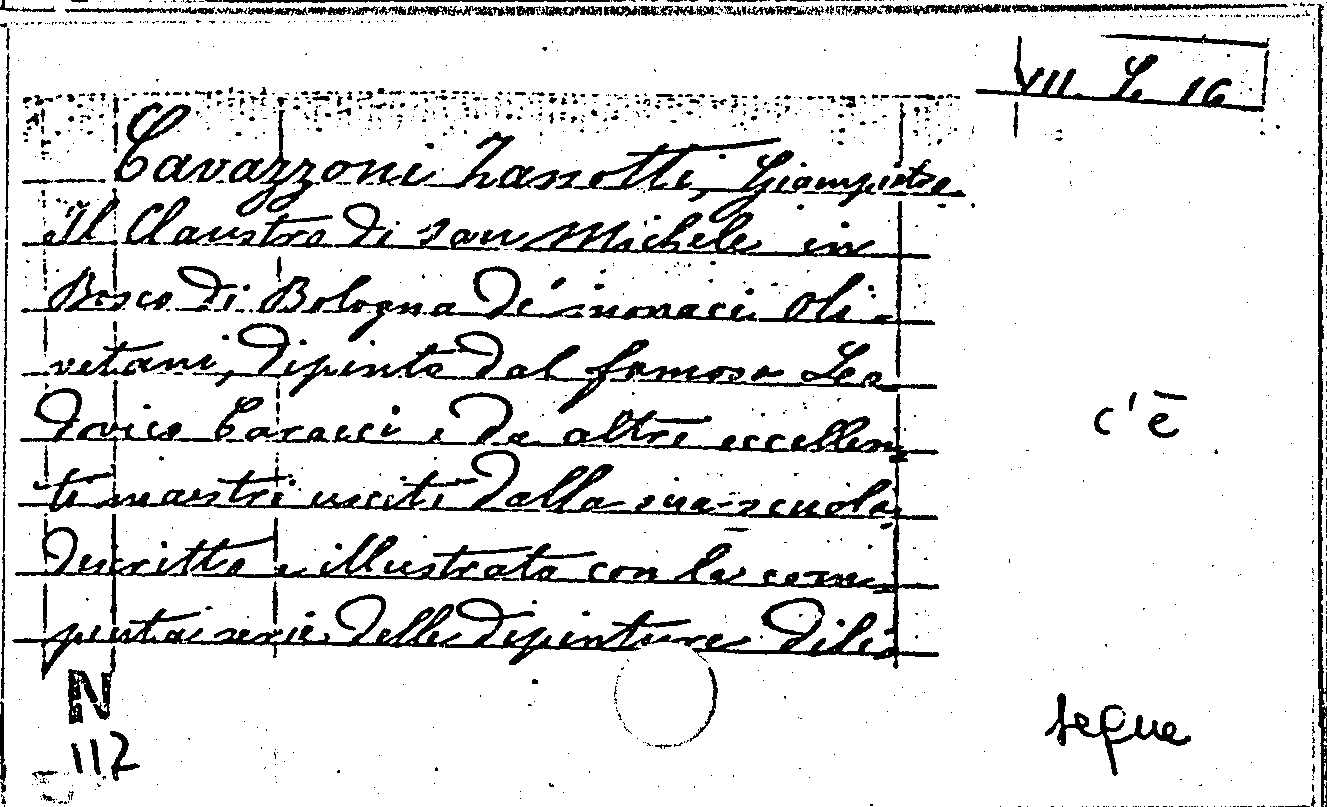 VII. L. 16
Cavazzoni Zanotti, Giampietro.
Il Claustro di san Michele in
Bosco di Bologna de' monaci Oli-
vetani, dipinto dal famoso Lo-
dovico Caracci e da altri eccellen
ti maestri usciti dalla sua scuola,
descritto e illustrato con la com-
piuta serie delle dipinture dili-
c'è
N
112
segue